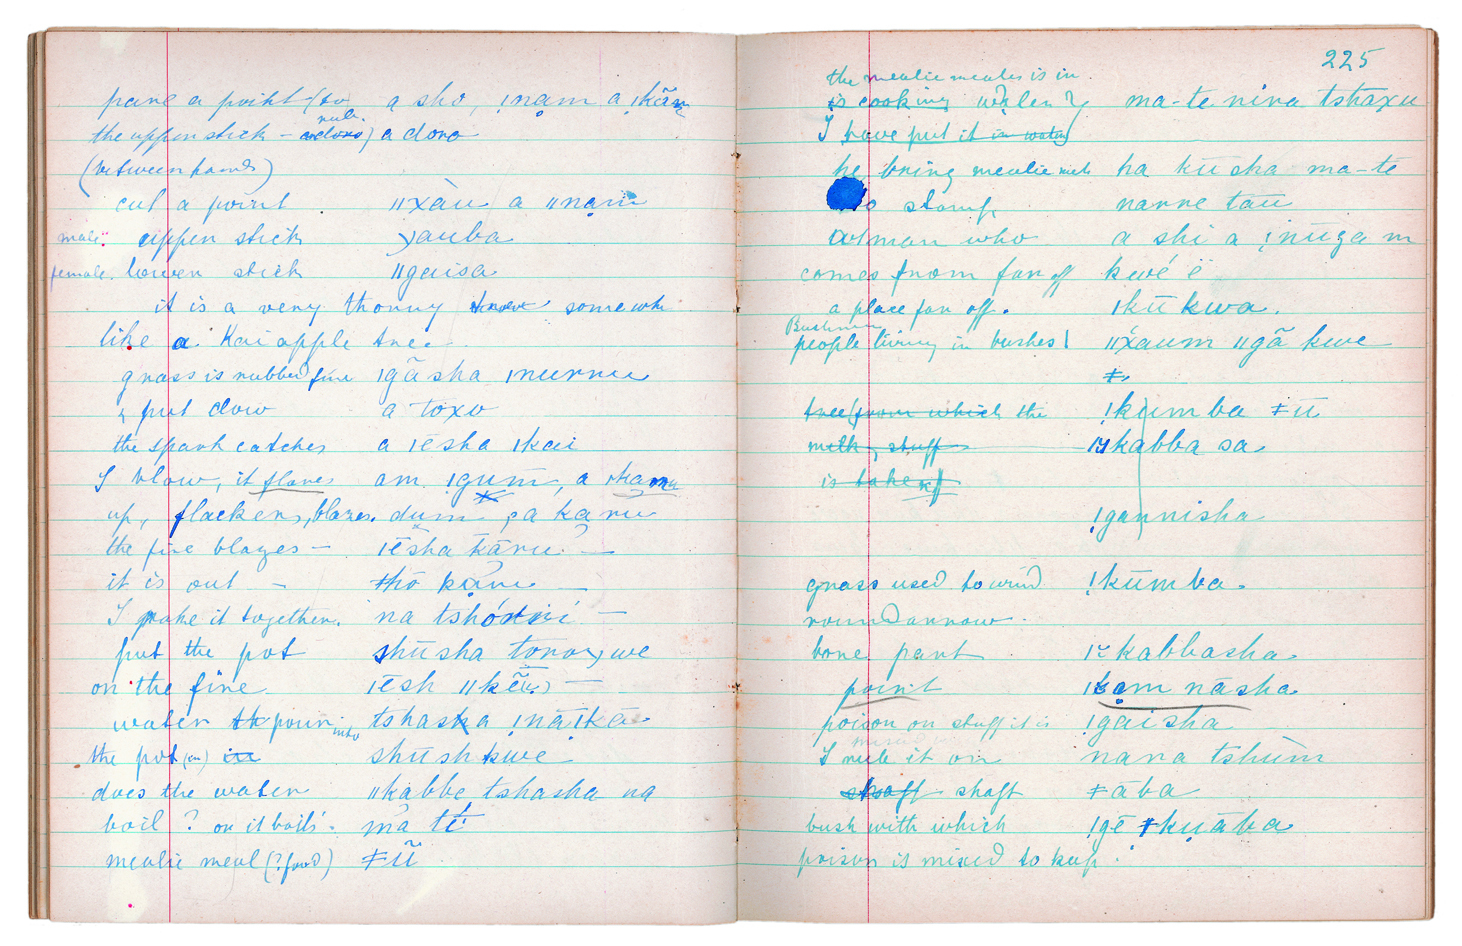 pare a point (to a sho, ǀnạm a ǀkãn
rub
the upper stick – ) a doro
(between hands)
cut a point ǁxàu a ǁnạm
male: upper stick )auba
female. lower stick ǁgaisa
it is a very thorny tree somewh
like a Kai apple tree –
grass is rubbed fine ǀgãsha ǀnurru
& put dow a toxo
the spark catches a ıēsha ıkai
I blow, it flares am ǃgum, a
up, flackers, blazes. dum, a kạru
the fire blazes – ıēsha kāru –
it is out –
I make it together. na
put the pot shūsha we
on the fire ıēsh
water pour into tshaska ǃnāīkā
the pot (on) in shūsh kwe
does the water ǁkabbe tshasha na
boil? or it boils. mā tē
mealie meal (? food) ǂū
225
the mealie meales is in
is cooking ma-te nira tshaxu
I have put it in water
he bring mealie meh ha kū sha ma-te
to stamp narre tau
who a shi a ǃnūga m
comes from far off kwé ë
a place far off. ıkū kwa.
Bushmen
people living in bushes! ǁxaum ǁgã kwe
ǂ
tree (from which the ǃkumba ǂū
milk, stuff kabba sa
is taken)
ǃgannisha
grass used to wind ǃkūmba.
round arrow.
bone part kabbasha.
point nāsha
poison or stuff it is ǃgāīsha
I rub it on nana tshùm
shaft ǂāba
bush with which ǃgē ǂkụāba
poison is mixed to keep.